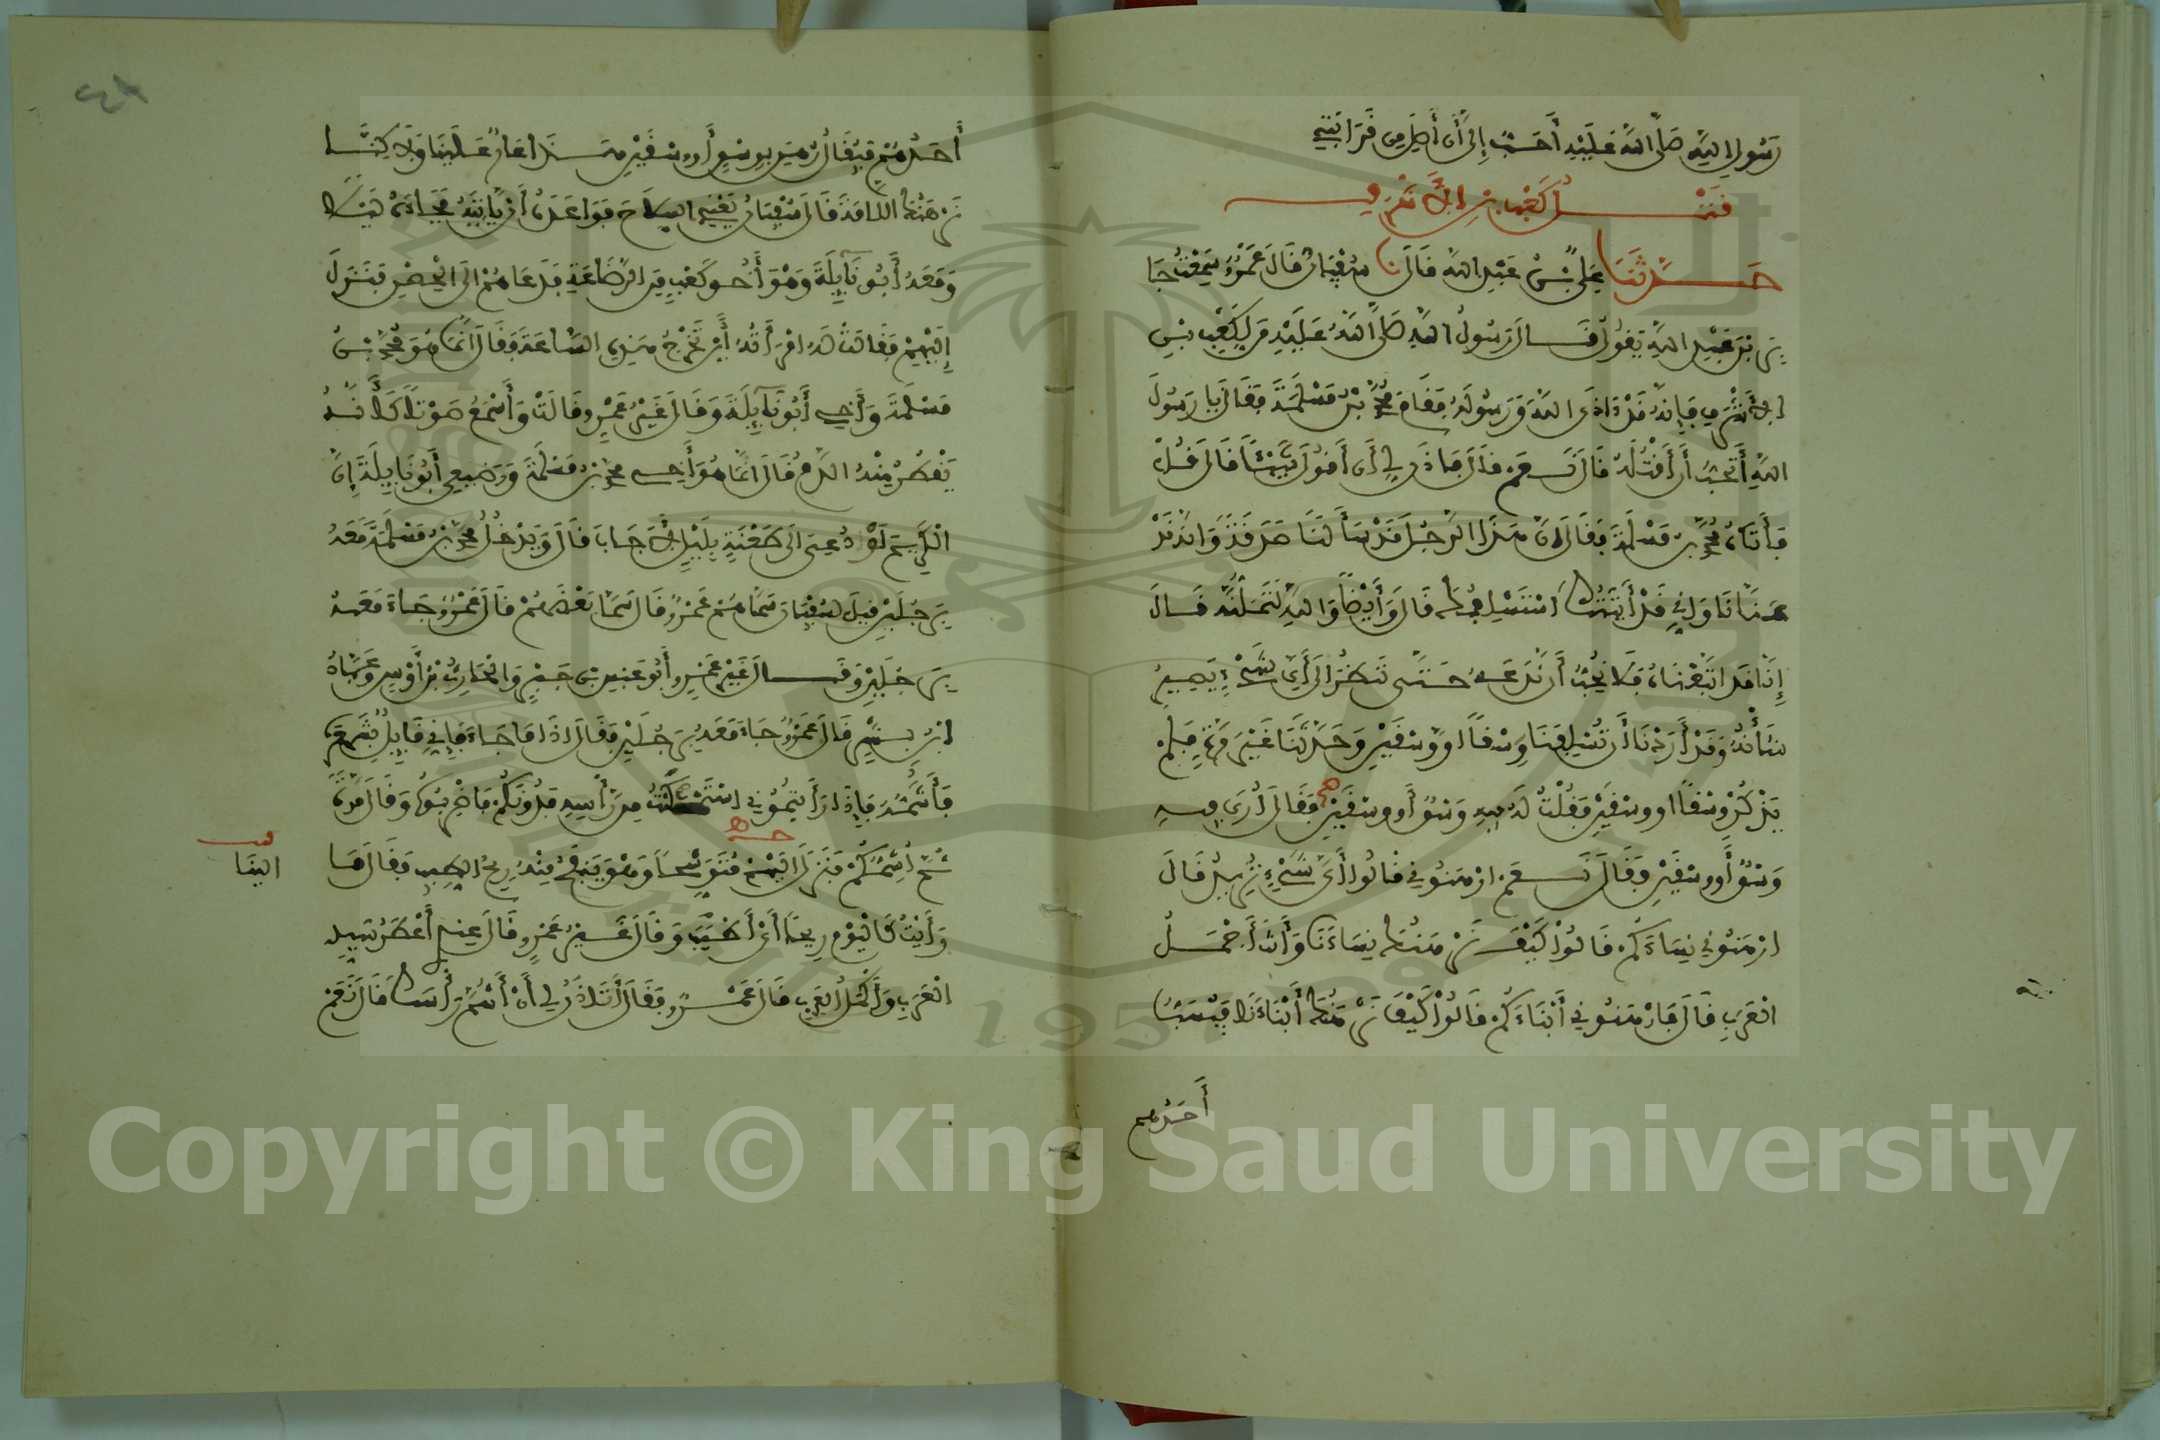 رَسُولِ اللهِ صَلَّى اللهُ عَلَيْهِ أَحَبُّ إِلَيَّ أَنْ أَصِلَ مِن قَرَابَتِي
قَتْلُ كَعْبِ بْنِ الأَشْرَفِ
حَدَّثَنَا عَلِيُّ بْنُ عَبْدِ اللهِ قَالَ نا سُفْيَانُ قَالَ عَمْرٌو سَمِعْتُ جَا
بِرَ بْنَ عَبْدِ اللهِ يَقُولُ قَالَ رَسُولُ اللهِ صَلَّى اللهُ عَلَيْهِ مَن لِكَعْبِ بْنِ
الأَشْرَفِ فَإِنَّهُ قَدْ اذَى اللهَ وَرَسُولَهُ فَقَامَ مُحَمَّدُ بْنُ مَسْلَمَةَ فَقَالَ يَا رَسُولَ
اللهِ أَتُحِبُّ أَنْ أَقْتُلَهُ قَالَ نَعَمْ قَالَ فَاذَن لِي أَن أَقُولَ شَيْئًا قَالَ قُلْ
فَأَتَاهُ مُحَمَّدُ بْنُ مَسْلَمَةَ فَقَالَ إِنَّ هَذَا الرَّجُلَ قَدْ سَأَلَنَا صَدَقَةً وَإِنَّهُ قَدْ
عَنَّانَا وَإِنِّي قَدْ أَتَيْتُكَ أَسْتَسْلِفُكَ قَالَ وَأَيْضًا وَاللهِ لَتَمَلُّنَّهُ قَالَ
إِنَّا قَدِ اتَّبَعْنَاهُ فَلَا نُحِبُّ أَنْ نَدَعَهُ حَتَّى نَنظُرَ إِلَى أَيِّ شَيْءٍ يَصِيرُ
شَأْنُهُ وَقَدْ أَرَدْنَا أَنْ تُسْلِفَنَا وَسْقًا أَوْ وَسْقَيْنِ وَحَدَّثَنَا غَيْرَ مَرَّةٍ فَلَمْ
يَذْكُرْ وَسْقًا أَوْ وَسْقَيْنِ فَقُلْتُ لَهُ فِيهِ وَسْقٌ أَوْ وَسْقَيْنِ فَقَالَ أُرَى فِيهِ
وَسْقٌ أَوْ وَسْقَيْنِ فَقَالَ نَعَمْ ارْهَنُونِي قَالُوا أَيَّ شَيْءٍ تُرِيدُ قَالَ
ارْهَنُونِي نِسَاءَكُمْ قَالُوا كَيْفَ نَرْهَنُكَ نِسَاءَنَا وَأَنتَ أَجْمَلُ
الْعَرَبِ قَالَ فَارْهَنُونِي أَبْنَاءَكُمْ قَالُوا كَيْفَ نَرْهَنُكَ أَبْنَاءَنَا فَيُسَبُّ
أَحَدُهُم
٤٨
أَحَدُهُمْ فَيُقَالُ رُهِنَ بِوَسْقٍ أَوْ وَسْقَيْنِ هَذَا عَارٌ عَلَيْنَا وَلَكِنَّا
نَرْهَنُكَ اللَّامَةَ قَالَ سُفْيَانُ يَعْنِي السِّلَاحَ فَوَاعَدَهُ أَنْ يَاتِيَهُ فَجَاءَهُ لَيْلًا
وَمَعَهُ أَبُو نَايِلَةَ وَهُوَ أَخُو كَعْبٍ مِنَ الرَّضَاعَةِ فَدَعَاهُمْ إِلَى الْحِصْنِ فَنَزَلَ
إِلَيْهِمْ فَقَالَتْ لَهُ امْرَأَتُهُ أَيْنَ تَخْرُجُ هَذِهِ السَّاعَةَ فَقَالَ إِنَّمَا هُوَ مُحَمَّدُ بْنُ
مَسْلَمَةَ وَأَخِي أَبُو نَايِلَةَ وَقَالَ غَيْرُ عَمْرٍو قَالَتْ أَسْمَعُ صَوْتًا كَأَنَّهُ
يَقْطُرُ مِنْهُ الدَّمُ قَالَ إِنَّمَا هُوَ أَخِي مُحَمَّدُ بْنُ مَسْلَمَةَ وَرَضِيعِي أَبُو نَايِلَةَ إِنَّ
الْكَرِيمَ لَوْ دُعِيَ إِلَى طَعْنَةٍ بِلَيْلٍ لأَجَابَ قَالَ وَيَدْخُلُ مُحَمَّدُ بْنُ مَسْلَمَةَ مَعَهُ
بِرَجُلَيْنِ قِيلَ لِسُفْيَانَ سَمَّاهُمْ عَمْرٌو قَالَ سَمَّا بَعْضَهُمْ قَالَ عَمْرٌو جَاءَ مَعَهُ
بِرَجُلَيْنِ وَقَالَ غَيْرُ عَمْرٍو أَبُو عَبْسِ بْنُ جَبْرٍ وَالْحَارِثُ بْنُ أَوْسٍ وَعَبَّادُ
ابْنُ بِشْرٍ قَالَ عَمْرٌو جَاءَ مَعَهُ بِرَجُلَيْنِ فَقَالَ إِذَا مَا جَاءَ فَإِنِّي قَايِلٌ بِشَعَرِهِ
فَأَشَمُّهُ فَإِذَا رَأَيْتُمُونِي اسْتَمْكَنْتُ مِنْ رَأْسِهِ فَدُونَكُمْ فَاضْرِبُوهُ وَقَالَ مَرَّةً
ثُمَّ أُشِمُّكُمْ فَنَزَلَ إِلَيْهِمْ مُتَوَشِّحًا وَهُوَ يَنْفَحُ مِنْهُ رِيحُ الطِّيبِ فَقَالَ مَا
رَأَيْتُ كَالْيَوْمِ رِيحًا أَيْ أَطْيَبَ وَقَالَ غَيْرُ عَمْرٍو قَالَ عِنْدِي أَعْطَرُ
الْعَرَبِ وَأَكْمَلُ الْعَرَبِ قَالَ عَمْرٌو فَقَالَ أَتَاذَنُ لِي أَنْ أَشُمَّ رَأْسَكَ قَالَ نَعَمْ
Copyright © King Saud University
1957